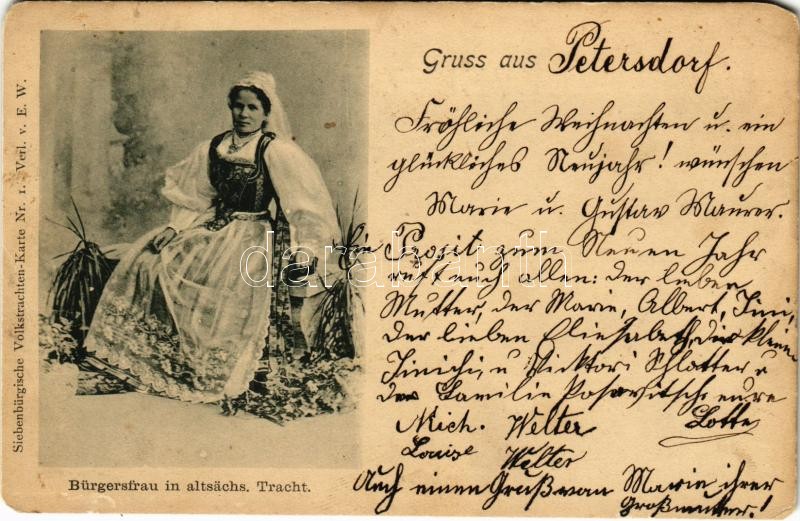 Siebenbürgische Volkstrachten-Karte Nr. 1. Verl. v. E. W.
Gruss aus Petersdorf.
Fröhliche Weihnachten u. ein
glückliches Neujahr! wünschen
Marie u. Gustav Maurer.
Ein Prosit zum Neuen Jahr
ruft euch allen: der lieben
Mutter, der Marie, Albert,
der lieben Elisabeth, der kleinen
u Schlatter u
der Familie eure
Mich. Welter Lotte
Louise Welter
Auch einen Gruß von Marie ihrer
Großmutter!
Bürgersfrau in altsächs. Tracht.
darabanth